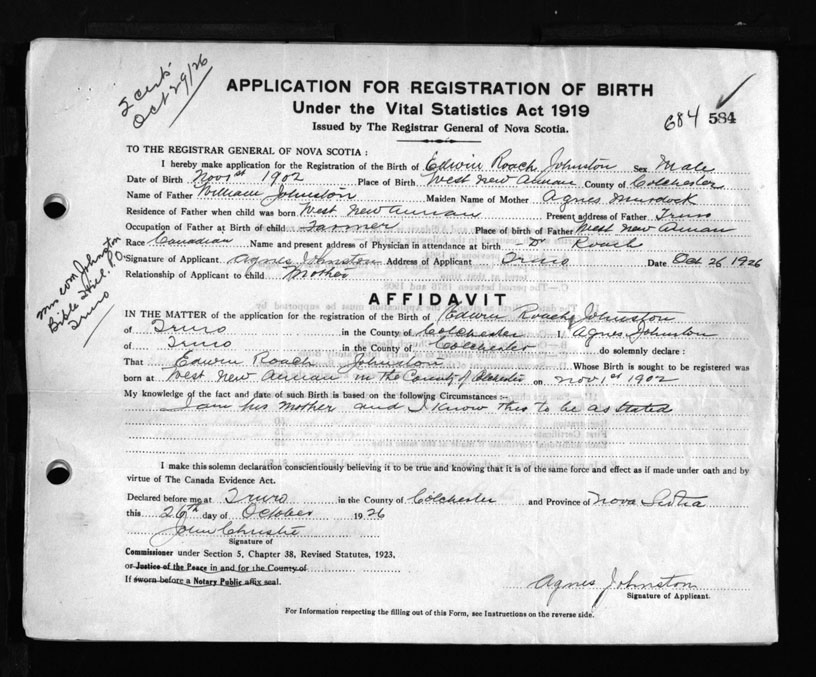 2 certs
Oct 29/26
APPLICATION FOR REGISTRATION OF BIRTH
Under the Vital Statistics Act 1919
Issued by The Registrar General of Nova Scotia.
684 584
TO THE REGISTRAR GENERAL OF NOVA SCOTIA :
I hereby make application for the Registration of the Birth of Edwin Roach Johnston Sex Male
Date of Birth Nov 1st 1902 Place of Birth West New Annan County of Colchester
Name of Father William Johnston Maiden Name of Mother Agnes Murdock
Residence of Father when child was born West New Annan Present address of Father Truro
Occupation of Father at Birth of child Farmer Place of Birth of Father West New Annan
Race Canadian Name and present address of Physician in attendance at birth - Dr Roach
Signature of Applicant Agnes Johnston Address of Applicant Truro Date Oct 26 1926
Relationship of Applicant to Child Mother
Mrs Wm Johnston
Bible Hill P.O.
Truro
AFFIDAVIT
IN THE MATTER of the application for the registration of the Birth of Edwin Roach Johnston
of Truro in the County of Colchester I, Agnes Johnston
of Truro in the County of Colchester do solemnly declare :
That Edwin Roach Johnston Whose Birth is sought to be registered was
born at West New Annan in the County of Colchester on Nov 1st 1902
My knowledge of the fact and date of such Birth is based on the following Circumstances :-
I am his mother and I know this to be as stated
I make this solemn declaration conscientiously believing it to be true and knowing that it is of the same force and effect as if made under oath and by
virtue of The Canada Evidence Act.
Declared before me at Truro in the County of Colchester and Province of Nova Scotia
this 26th day of October 1926
John Christie
Signature of
Commissioner under Section 5, Chapter 38, Revised Statutes, 1923,
or Justice of the Peace in and for the County of
If sworn before a Notary Public affix seal.
Agnes Johnston
Signature of Applicant.
For Information respecting the filling out of this Form, see Instructions on the reverse side.